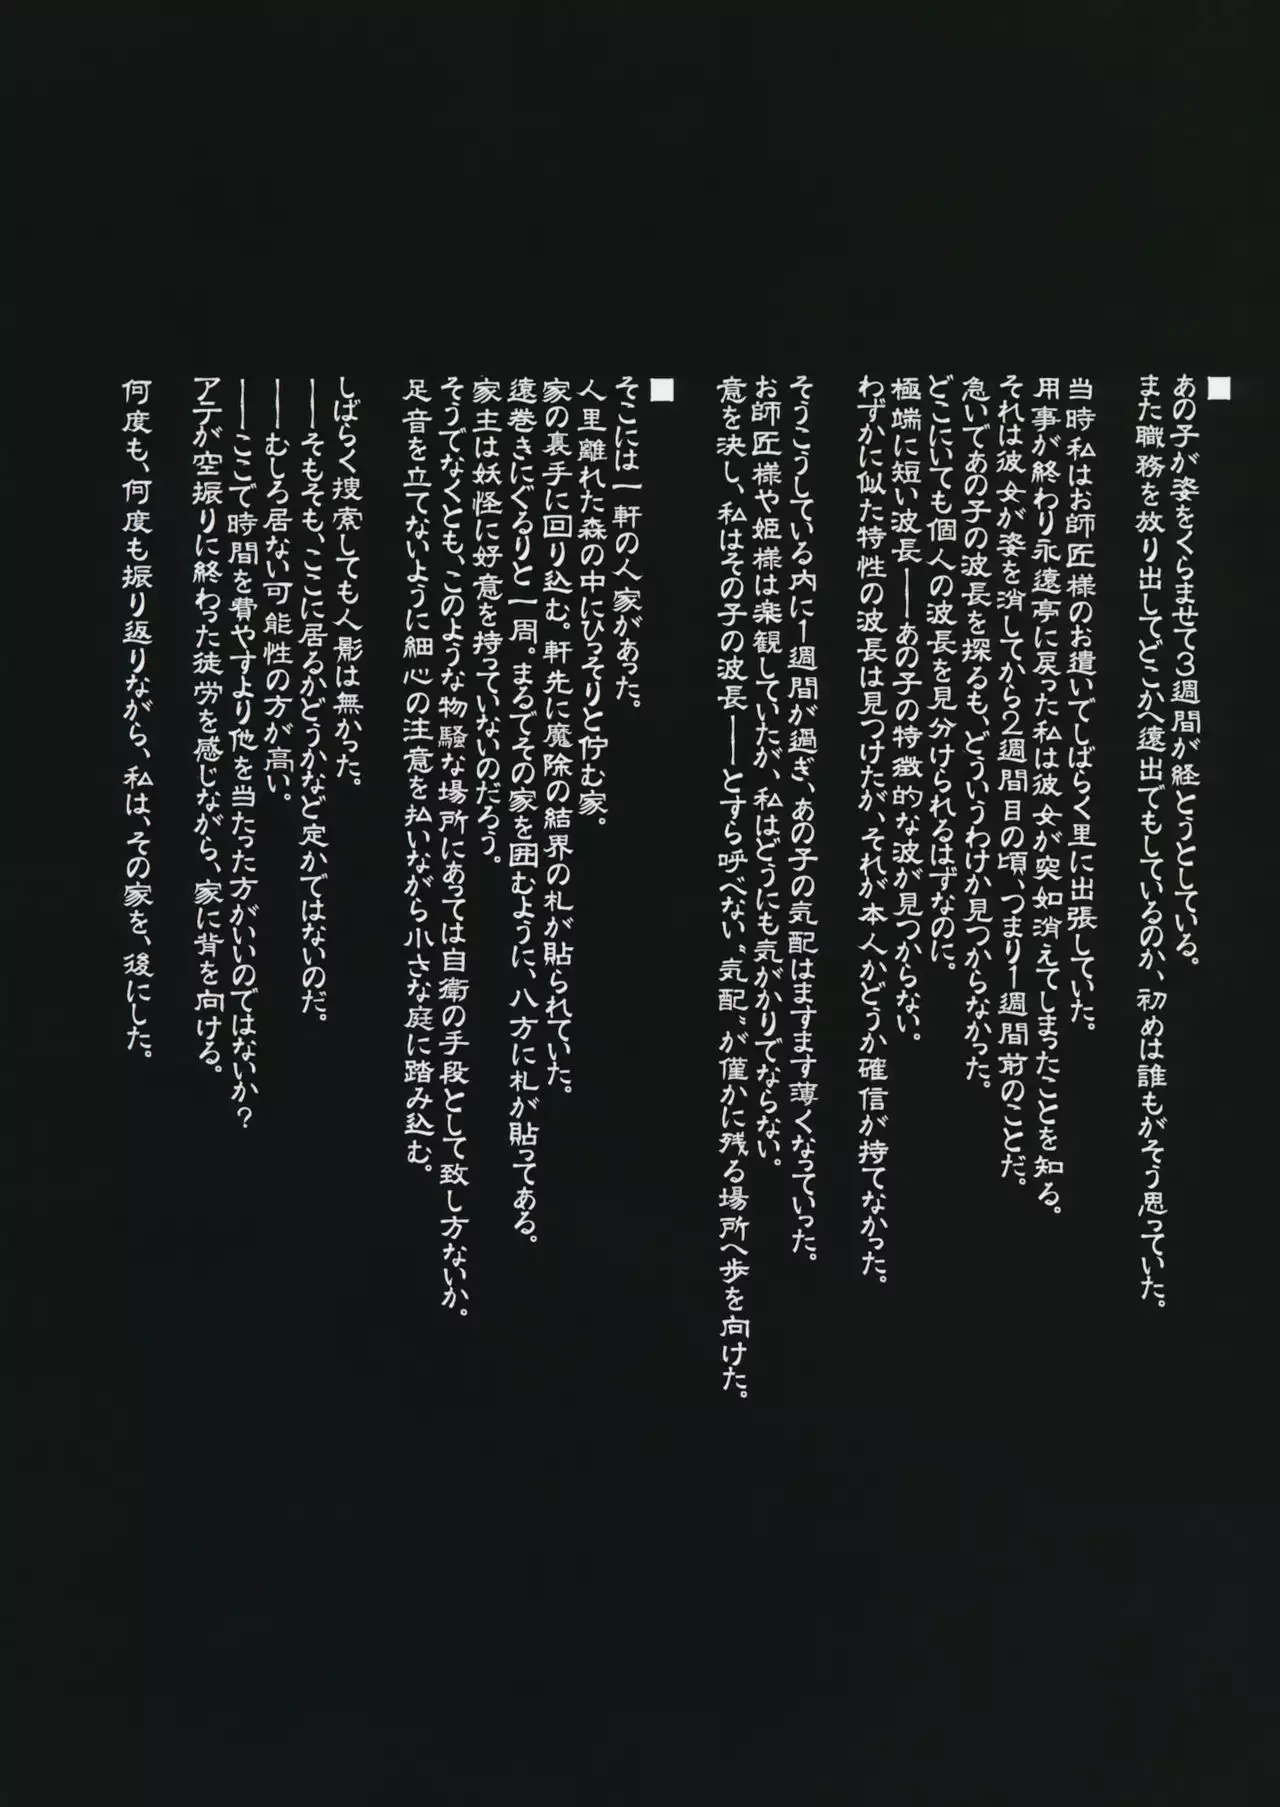 ■
あの子が姿をくらませて3週間が経とうとしている。
また職務を放り出してどこかへ遠出でもしているのか、初めは誰もがそう思っていた。
当時私はお師匠様のお遣いでしばらく里に出張していた。
用事が終わり永遠亭に戻った私は彼女が突如消えてしまったことを知る。
それは彼女が姿を消してから2週間目の頃、つまり1週間前のことだ。
急いであの子の波長を探るも、どういうわけか見つからなかった。
どこにいても個人の波長を見分けられるはずなのに。
極端に短い波長――あの子の特徴的な波が見つからない。
わずかに似た特性の波長は見つけたが、それが本人かどうか確信が持てなかった。
そうこうしている内に1週間が過ぎ、あの子の気配はますます薄くなっていった。
お師匠様や姫様は楽観していたが、私はどうにも気がかりでならない。
意を決し、私はその子の波長――とすら呼べない〝気配〟が僅かに残る場所へ歩を向けた。
■
そこには一軒の人家があった。
人里離れた森の中にひっそりと佇む家。
家の裏手に回り込む。軒先に魔除の結界の札が貼られていた。
遠巻きにぐるりと一周。まるでその家を囲むように、八方に札が貼ってある。
家主は妖怪に好意を持っていないのだろう。
そうでなくとも、このような物騒な場所にあっては自衛の手段として致し方ないか。
足音を立てないように細心の注意を払いながら小さな庭に踏み込む。
しばらく捜索しても人影は無かった。
――そもそも、ここに居るかどうかなど定かではないのだ。
――むしろ居ない可能性の方が高い。
――ここで時間を費やすより他を当たった方がいいのではないか？
アテが空振りに終わった徒労を感じながら、家に背を向ける。
何度も、何度も振り返りながら、私は、その家を、後にした。